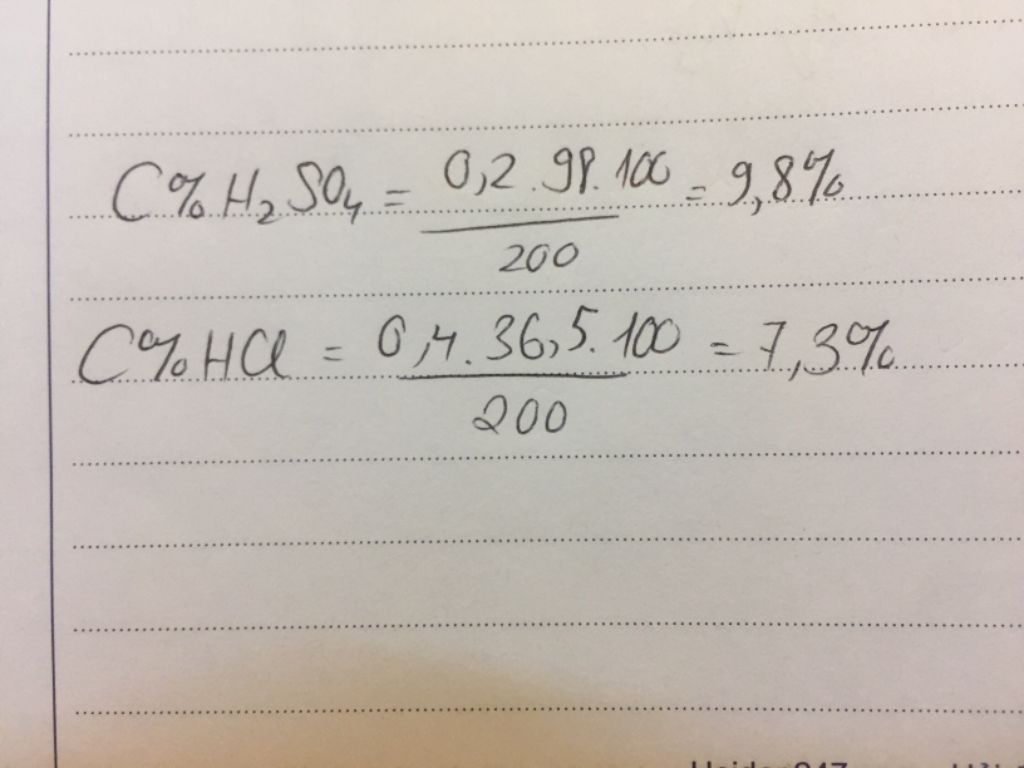 C% H₂SO₄ = 0,2 . 98 . 100 / 200 = 9,8%
C% HCl = 0,4 . 36,5 . 100 / 200 = 7,3%